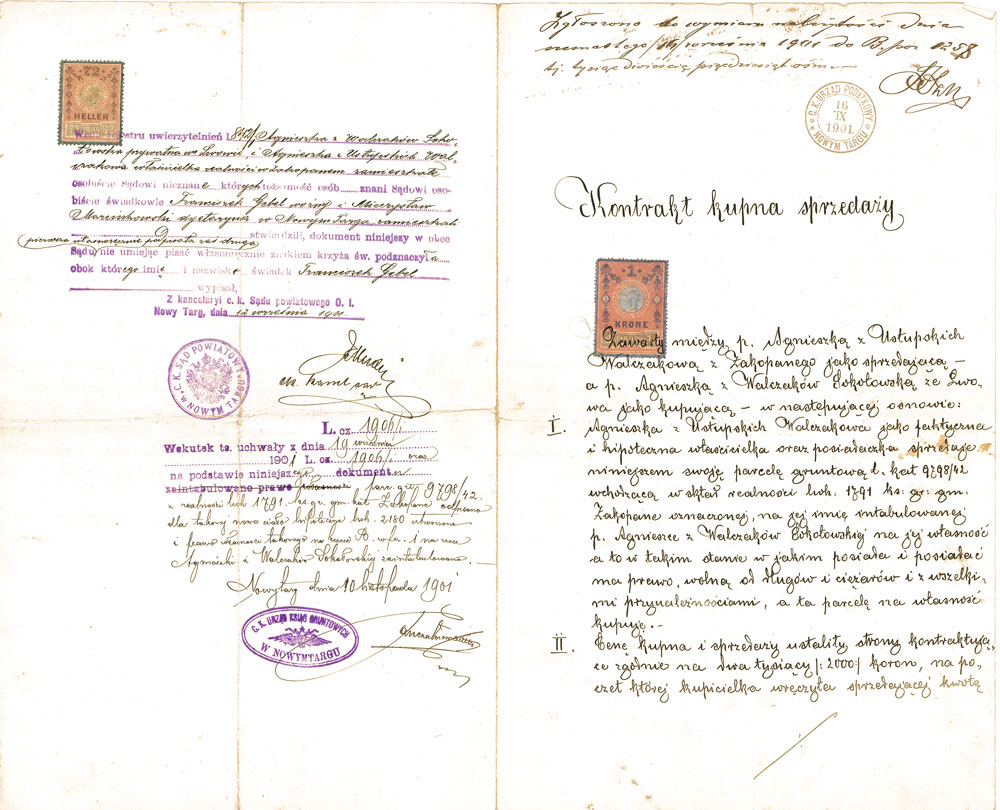 72
HELLER
Wedle rejestru uwierzytelnień l. 842/1 Agnieszka z Walczaków Soko-
łowska prywatna we Lwowie i Agnieszka z Ustupskich Wal-
czakowa właścicielka realności w Zakopanem zamieszkałe
osobiście Sądowi nieznane których tożsamość osób znani Sądowi oso-
biście świadkowie Franciszek Gebel woźny i Mieczysław
dyetaryusz w Nowym Targu zamieszkali
stwierdzili, dokument niniejszy w obec
pierwsza własnoręcznie podpisała zaś druga
Sądu nie umiejąc pisać własnoręcznie znakiem krzyża św. podznaczyła
obok którego imię i nazwisko świadek Franciszek Gebel
wypisał,
Z kancelaryi c. k. Sądu powiatowego O. I.
Nowy Targ, dnia 12 września 1901
C. K. SĄD POWIATOWY W NOWYM TARGU
L. cz. 1906/1
Wskutek ts. uchwały z dnia 19 września
1901 L. cz. 1906/1 oraz
na podstawie niniejszego dokumentu
zaintabulowano prawo własności parc. gr. 9798/42
z realności lwh. 1791 ks. gr. gm. kat. Zakopane odpisano
dla takowej nowe ciało hipoteczne lwh. 2180 utworzono
i prawo własności takowego na karcie B. w poz. 1 na rzecz
Agnieszki z Walczaków Sokołowskiej zaintabulowano. —
Nowytarg dnia 10 listopada 1901
C. K. URZĄD KSIĄG GRUNTOWYCH
W NOWYMTARGU
Zgłoszono do wymiaru należytości dnia
września 1901 do B. poz. 1258
tj. tysiąc dwieście pięćdziesiąt ośm —
C. K. URZĄD PODATKOWY W NOWYM TARGU
16
IX
1901
Kontrakt kupna sprzedaży
1
KRONE
Zawarty między p. Agnieszką z Ustupskich
Walczakową z Zakopanego jako sprzedającą —
a p. Agnieszką z Walczaków Sokołowską ze Lwo-
wa jako kupującą — w następującej osnowie:
I. Agnieszka z Ustupskich Walczakowa jako faktyczna
i hipoteczna właścicielka oraz posiadaczka sprzedaje
niniejszem swoję parcelę gruntową l. kat 9798/42
wchodzącą w skład realności lwh. 1791 ks. gr. gm.
Zakopane oznaczonej, na jej imię intabulowanej
p. Agnieszce z Walczaków Sokołowskiej na jej własność
a to w takim stanie w jakim posiada i posiadać
ma prawo, wolną od długów i ciężarów i z wszelki-
mi przynależnościami, a ta parcelę na własność
kupuje. —
II. Cenę kupna i sprzedaży ustaliły strony kontraktują-
ce zgodnie na dwa tysiący /: 2000 :/ koron, na po-
czet której kupicielka wręczyła sprzedającej kwotę